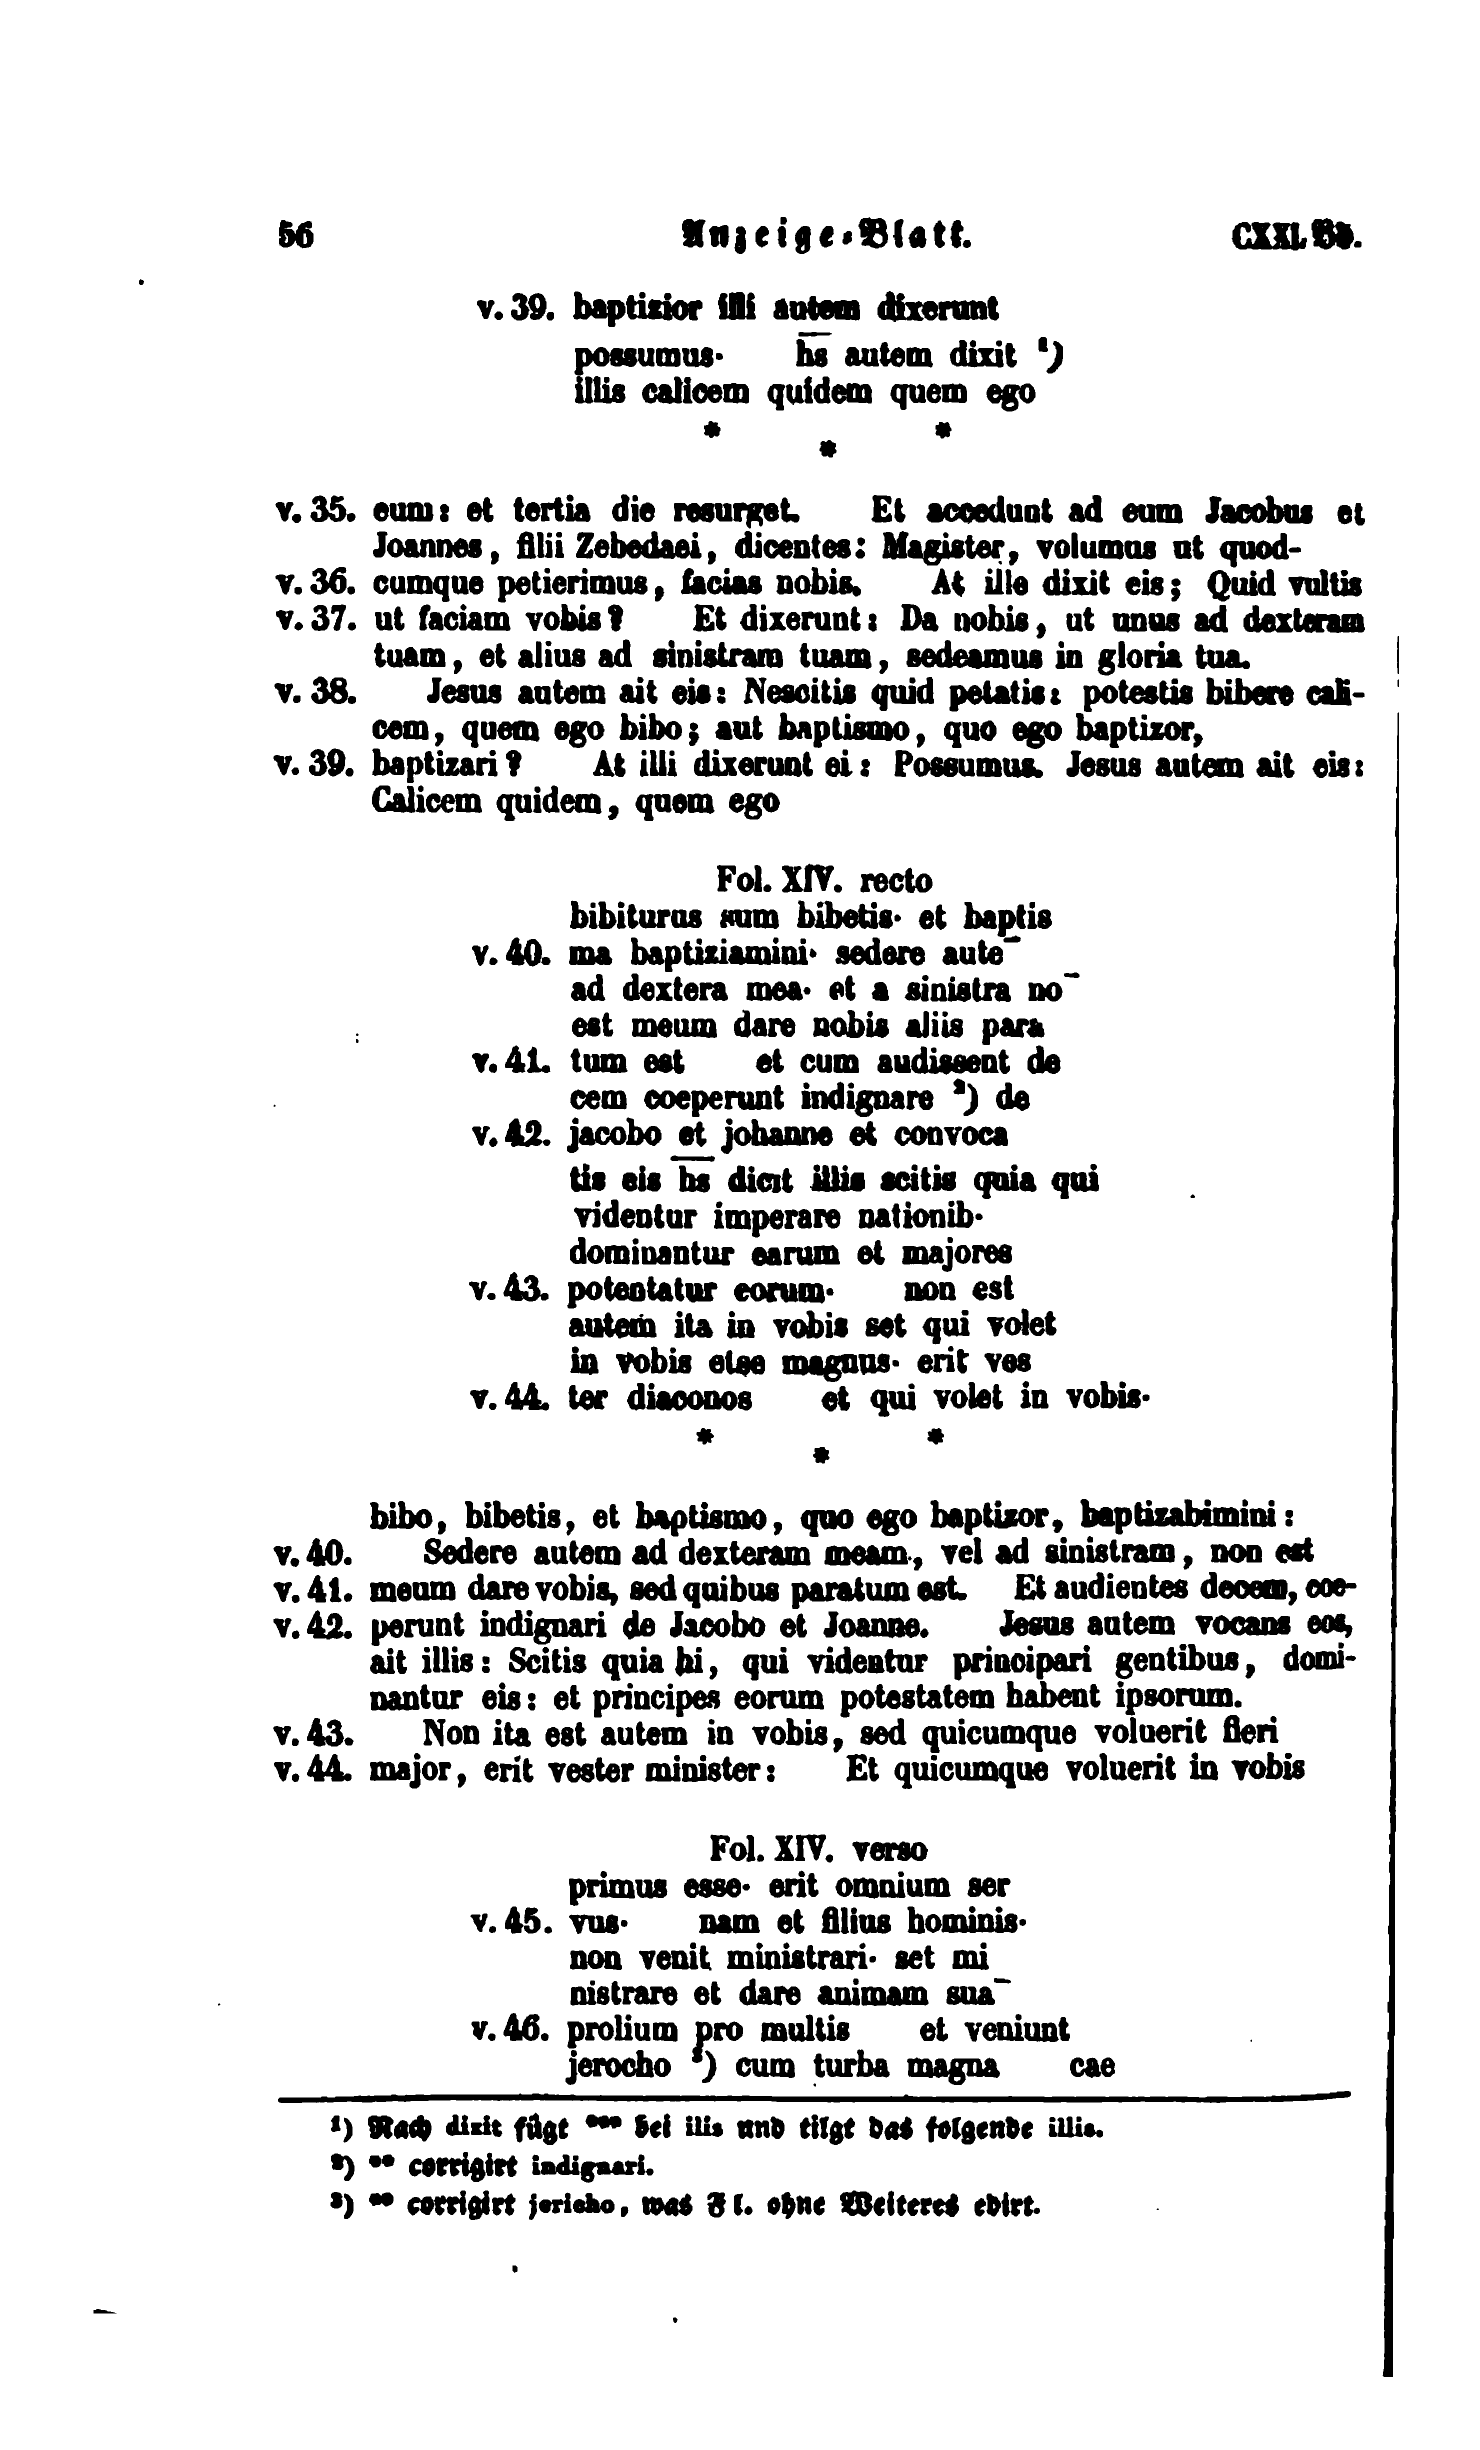 56 Anzeige-Blatt. CXXI. Bd.
v. 39. baptizior illi autem dixerunt
possumus· h̅s̅ autem dixit ¹)
illis calicem quidem quem ego
* * *
v. 35. eum: et tertia die resurget. Et accedunt ad eum Jacobus et
Joannes, filii Zebedaei, dicentes: Magister, volumus ut quod-
v. 36. cumque petierimus, facias nobis. At ille dixit eis; Quid vultis
v. 37. ut faciam vobis? Et dixerunt: Da nobis, ut unus ad dexteram
tuam, et alius ad sinistram tuam, sedeamus in gloria tua.
v. 38. Jesus autem ait eis: Nescitis quid petatis: potestis bibere cali-
cem, quem ego bibo; aut baptismo, quo ego baptizor,
v. 39. baptizari? At illi dixerunt ei: Possumus. Jesus autem ait eis:
Calicem quidem, quem ego
Fol. XIV. recto
bibiturus sum bibetis· et baptis
v. 40. ma baptiziamini· sedere aute¯
ad dextera mea· et a sinistra no¯
est meum dare nobis aliis para
v. 41. tum est et cum audissent de
cem coeperunt indignare ²) de
v. 42. jacobo et johanne et convoca
tis eis h̅s̅ dicit illis scitis quia qui
videntur imperare nationib·
dominantur earum et majores
v. 43. potentatur eorum· non est
autem ita in vobis set qui volet
in vobis etse magnus· erit ves
v. 44. ter diaconos et qui volet in vobis·
* * *
bibo, bibetis, et baptismo, quo ego baptizor, baptizabimini:
v. 40. Sedere autem ad dexteram meam, vel ad sinistram, non est
v. 41. meum dare vobis, sed quibus paratum est. Et audientes decem, coe-
v. 42. perunt indignari de Jacobo et Joanne. Jesus autem vocans eos,
ait illis: Scitis quia hi, qui videntur principari gentibus, domi-
nantur eis: et principes eorum potestatem habent ipsorum.
v. 43. Non ita est autem in vobis, sed quicumque voluerit fieri
v. 44. major, erit vester minister: Et quicumque voluerit in vobis
Fol. XIV. verso
primus esse· erit omnium ser
v. 45. vus· nam et filius hominis·
non venit ministrari· set mi
nistrare et dare animam sua¯
v. 46. prolium pro multis et veniunt
jerocho ³) cum turba magna cae
¹) Nach dixit fügt *** bei ilis und tilgt das folgende illis.
²) ** corrigirt indignari.
³) ** corrigirt jericho, was Fl. ohne Weiteres edirt.